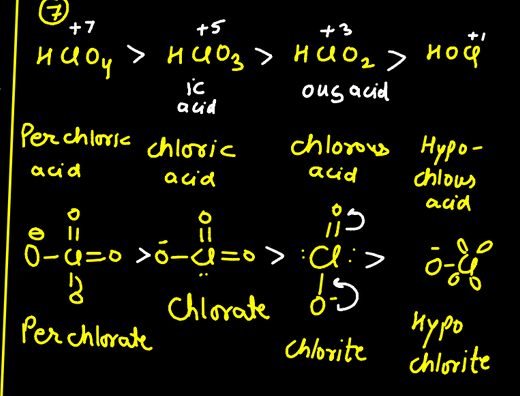 7
+7 +5 +3 +1
HClO4 > HClO3 > HClO2 > HOCl
ic acid
ous acid
Perchloric acid
chloric acid
chlorous acid
Hypo-
chlous
acid
⊖
O-Cl=O > O-Cl=O > :Cl: > O-Cl
O O O O O
Perchlorate
Chlorate
chlorite
Hypo
chlorite